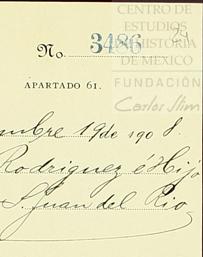 CENTRO DE
ESTUDIOS
DE HISTORIA
DE MEXICO
FUNDACIÓN
Carlos Slim
No. 3486
24
APARTADO 61.
mbre 19 de 1908.
Rodriguez é Hijo
S. Juan del Rio